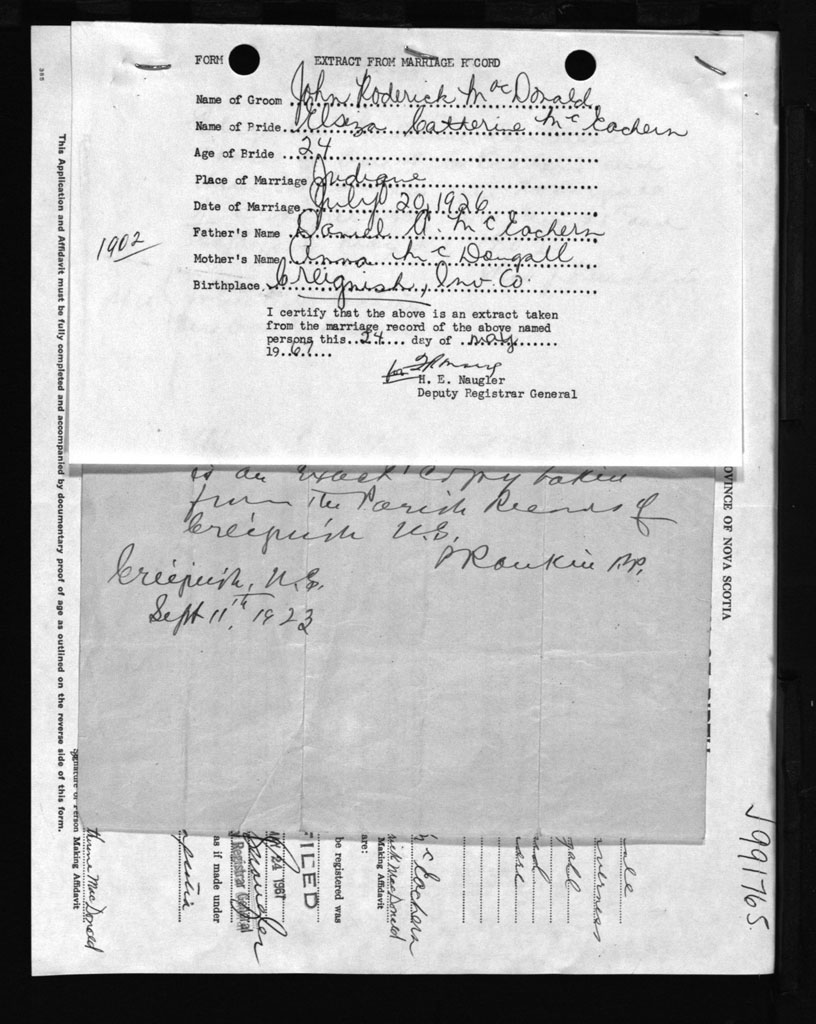 FORM EXTRACT FROM MARRIAGE RECORD
Name of Groom John Roderick MacDonald
Name of Bride Elseza Catherine McEachern
Age of Bride 24
Place of Marriage Judique
Date of Marriage July 20, 1926
Father's Name Daniel A. McEachern
1902
Mother's Name Anna McDougall
Birthplace Creignish, Inv. Co.
I certify that the above is an extract taken
from the marriage record of the above named
persons this 24 day of May
1967
for
H. E. Naugler
Deputy Registrar General
is an exact copy taken
from the Parish Records of
Creignish N.S.
Rankin P.P.
Creignish, N.S.
Sept 11th, 1923
This Application and Affidavit must be fully completed and accompanied by documentary proof of age as outlined on the reverse side of this form.
OVINCE OF NOVA SCOTIA
991765
Signature of Person Making Affidavit
MacDonald
as if made under
Registrar General
MAY 24 1967
FILED
be registered was
are:
Making Affidavit
rick MacDonald
Mc Eachern
verness
gall